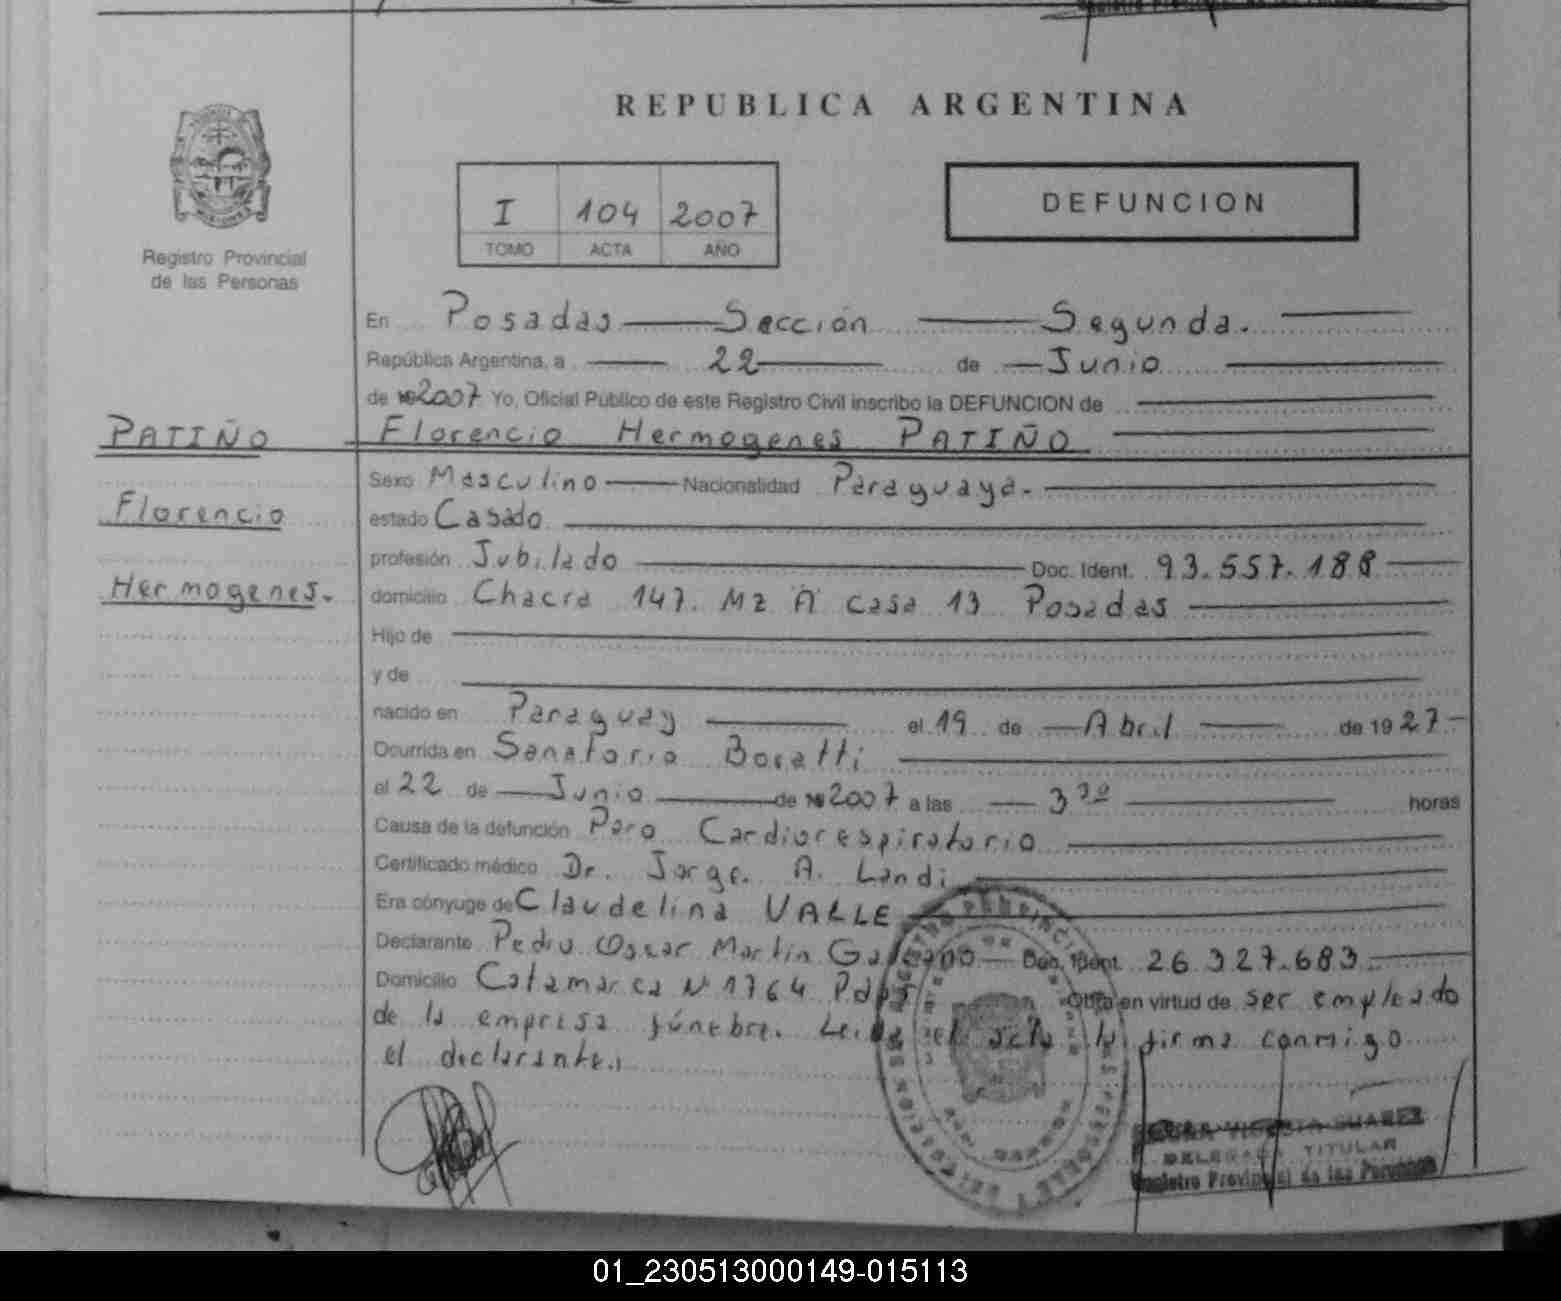 REPUBLICA ARGENTINA
I 104 2007
TOMO ACTA AÑO
DEFUNCION
Registro Provincial
de las Personas
En Posadas Sección Segunda.
República Argentina, a 22 de Junio
de 2007 Yo, Oficial Público de este Registro Civil inscribo la DEFUNCION de
PATIÑO Florencio Hermogenes PATIÑO
Sexo Masculino Nacionalidad Paraguaya.
Florencio
estado Casado
profesión Jubilado Doc. Ident. 93.557.188
Hermogenes.
domicilio Chacra 147. Mz A casa 13 Posadas
Hijo de
y de
nacido en Paraguay el 19 de Abril de 1927
Ocurrida en Sanatorio Boratti
el 22 de Junio de 2007 a las 3 30 horas
Causa de la defunción Paro Cardiorespiratorio
Certificado médico Dr. Jorge. A. Landi
Era cónyuge de Claudelina VALLE
Declarante Pedro Oscar Martin Galeano Doc. Ident. 26.327.683
Domicilio Catamarca Nº 1764 Obra en virtud de ser empleado
de la empresa fúnebre. Leida el acta la firma conmigo
el declarante.
SUAREZ
DELEGADA TITULAR
Registro Provincial de las Personas
01_230513000149-015113